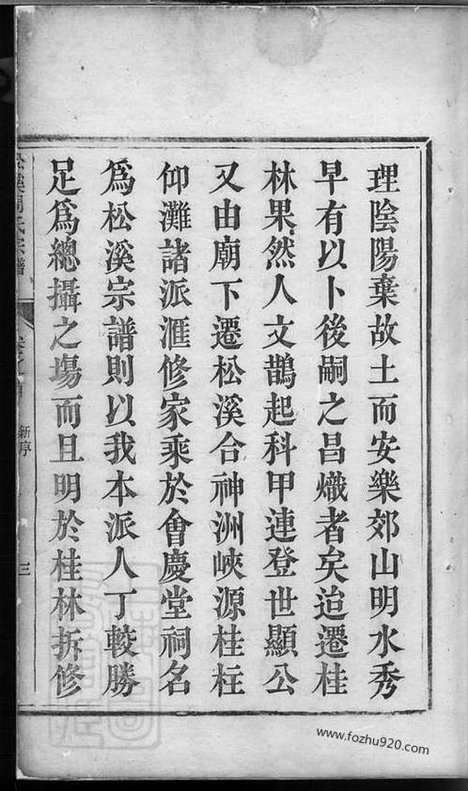 理陰陽棄故土而安樂郊山明水秀
早有以卜後嗣之昌熾者矣迨遷桂
林果然人文鵲起科甲連登世顯公
又由廟下遷松溪合神洲峽源桂柱
仰灘諸派滙修家乘於會慶堂祠名
為松溪宗譜則以我本派人丁較勝
足為總攝之塲而且明於桂林拆修
新序
三
www.fozhu920.com